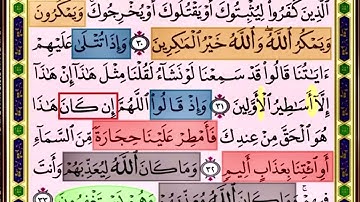 الَّذِينَ كَفَرُوا۟ لِيُثْبِتُوكَ أَوْ يَقْتُلُوكَ أَوْ يُخْرِجُوكَ وَيَمْكُرُونَ
وَيَمْكُرُ اللَّهُ وَاللَّهُ خَيْرُ الْمَٰكِرِينَ ٣٠ وَإِذَا تُتْلَىٰ عَلَيْهِمْ
ءَايَٰتُنَا قَالُوا۟ قَدْ سَمِعْنَا لَوْ نَشَآءُ لَقُلْنَا مِثْلَ هَٰذَا إِنْ هَٰذَا
إِلَّآ أَسَٰطِيرُ الْأَوَّلِينَ ٣١ وَإِذْ قَالُوا۟ اللَّهُمَّ إِن كَانَ هَٰذَا
هُوَ الْحَقَّ مِنْ عِندِكَ فَأَمْطِرْ عَلَيْنَا حِجَارَةً مِّنَ السَّمَآءِ
أَوِ ائْتِنَا بِعَذَابٍ أَلِيمٍ ٣٢ وَمَا كَانَ اللَّهُ لِيُعَذِّبَهُمْ وَأَنتَ
فِيهِمْ وَمَا كَانَ اللَّهُ مُعَذِّبَهُمْ وَهُمْ يَسْتَغْفِرُونَ ٣٣